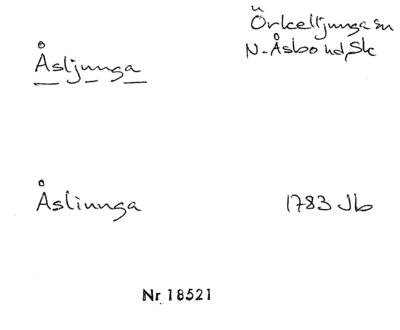 Örkelljunga sn
N. Åsbo hd, Sk
Åsljunga
Åsliunga 1783 Jb
Nr 18521